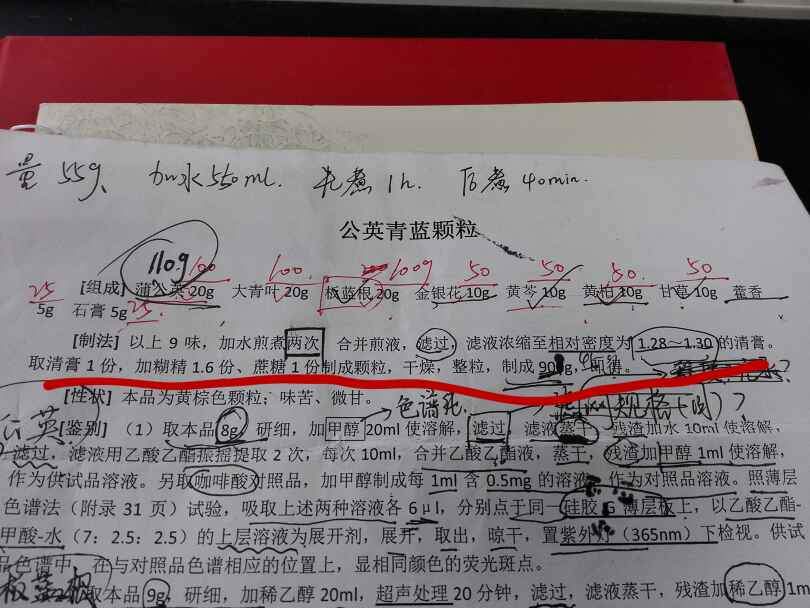 量 55g、 加水550ml. 先煮 1h. 后煮 40min.
公英青蓝颗粒
110g 100 100. 100g 50 50 50. 50
25 [组成] 蒲公英 20g 大青叶 20g 板蓝根 20g 金银花 10g 黄芩 10g 黄柏 10g 甘草 10g 藿香
5g 石膏 5g 25.
[制法] 以上 9 味，加水煎煮两次 合并煎液，滤过，滤液浓缩至相对密度为 1.28～1.30 的清膏。
取清膏 1 份，加糊精 1.6 份、蔗糖 1 份制成颗粒，干燥，整粒，制成 90g，即得。
[性状] 本品为黄棕色颗粒；味苦、微甘。
色谱纯
公英
[鉴别] （1）取本品 8g 研细，加甲醇 20ml 使溶解，滤过，滤液蒸干，残渣加水 10ml 使溶解，
滤过，滤液用乙酸乙酯振摇提取 2 次，每次 10ml，合并乙酸乙酯液，蒸干，残渣加甲醇 1ml 使溶解，
作为供试品溶液。另取咖啡酸对照品，加甲醇制成每 1ml 含 0.5mg 的溶液，作为对照品溶液。照薄层
色谱法（附录 31 页）试验，吸取上述两种溶液各 6μl，分别点于同一硅胶 G 薄层板上，以乙酸乙酯-
甲酸-水（7：2.5：2.5）的上层溶液为展开剂，展开，取出，晾干，置紫外灯（365nm）下检视。供试
品色谱中，在与对照品色谱相应的位置上，显相同颜色的荧光斑点。
板蓝根
取本品 9g，研细，加稀乙醇 20ml，超声处理 20 分钟，滤过，滤液蒸干，残渣加稀乙醇 1m